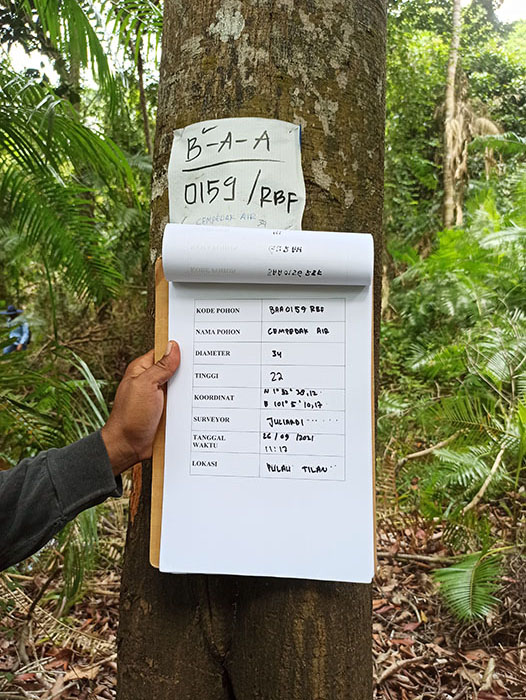 B-A-A
0159/RBF
CEMPEDAK AIR
KODE POHON BAA 0159 RBF
NAMA POHON CEMPEDAK AIR
DIAMETER 34
TINGGI 22
KOORDINAT N 1° 32' 28,12
E 101° 5' 10,17
SURVEYOR JULIARDI
TANGGAL 26/09/2021
WAKTU 11:17
LOKASI PULAU TILAN